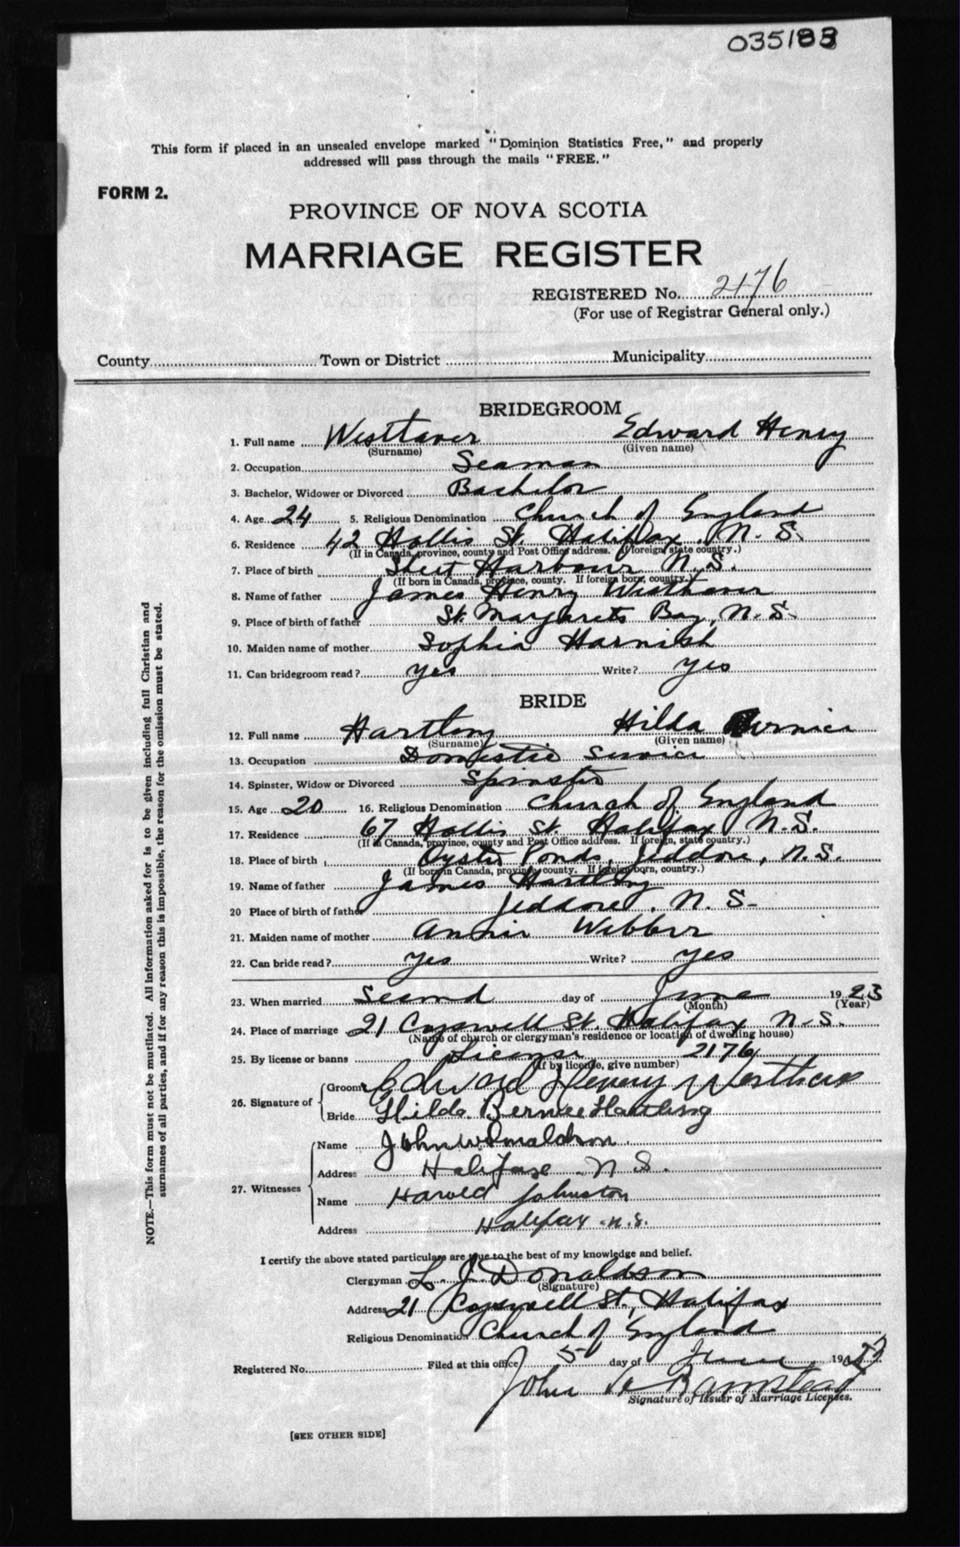 035183
This form if placed in an unsealed envelope marked "Dominion Statistics Free," and properly
addressed will pass through the mails "FREE."
FORM 2.
PROVINCE OF NOVA SCOTIA
MARRIAGE REGISTER
REGISTERED No. 2176
(For use of Registrar General only.)
County Town or District Municipality
BRIDEGROOM
1. Full name Westhaver Edward Henry
(Surname) (Given name)
2. Occupation Seaman
3. Bachelor, Widower or Divorced Bachelor
4. Age 24 5. Religious Denomination Church of England
6. Residence 42 Hollis St. Halifax, N. S.
(If in Canada, province, county and Post Office address. If foreign, state country.)
7. Place of birth Sheet Harbour N.S.
(If born in Canada, province, county. If foreign born, country.)
8. Name of father James Henry Westhaver
9. Place of birth of father St. Margarets Bay, N.S.
10. Maiden name of mother Sophia Harnish
11. Can bridegroom read? yes Write? yes
BRIDE
12. Full name Hartling Hilda Bernice
(Surname) (Given name)
13. Occupation Domestic Service
14. Spinster, Widow or Divorced Spinster
15. Age 20 16. Religious Denomination Church of England
17. Residence 67 Hollis St. Halifax N.S.
(If in Canada, province, county and Post Office address. If foreign, state country.)
18. Place of birth Oyster Ponds, Jeddore, N.S.
(If born in Canada, province, county. If foreign born, country.)
19. Name of father James Hartling
20 Place of birth of father Jeddore, N. S.
21. Maiden name of mother Annie Webber
22. Can bride read? yes Write? yes
23. When married Second day of June 1923
(Month) (Year)
24. Place of marriage 21 Cogswell St. Halifax N.S.
(Name of church or clergyman's residence or location of dwelling house)
25. By license or banns License 2176
(If by license, give number)
26. Signature of Groom Edward Henery Westhaver
Bride Hilda Bernice Hartling
27. Witnesses Name John W. Donaldson
Address Halifax N. S.
Name Harold Johnston
Address Halifax N.S.
I certify the above stated particulars are true to the best of my knowledge and belief.
Clergyman L. J. Donaldson
(Signature)
Address 21 Cogswell St., Halifax
Religious Denomination Church of England
Registered No. Filed at this office 5 day of June 19
John
Signature of Issuer of Marriage Licenses.
[SEE OTHER SIDE]
NOTE.—This form must not be mutilated. All information asked for is to be given including full Christian and
surnames of all parties, and if for any reason this is impossible, the reason for the omission must be stated.